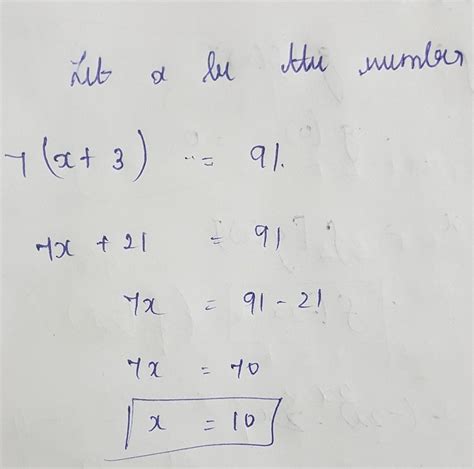 Let x be the number
7(x+3) = 91.
7x + 21 = 91
7x = 91 - 21
7x = 70
x = 10